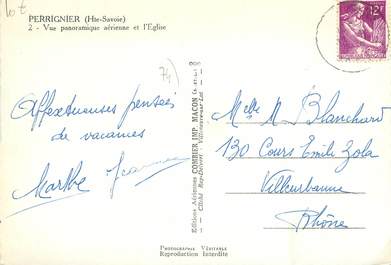 PERRIGNIER (Hte-Savoie)
2 - Vue panoramique aérienne et l'Eglise
12F
74)
Affectueuses pensées
de vacances
Marthe Jeanne
Editions Aériennes COMBIER IMP. MACON
Cliché Ray-Delvert - Villeneuve-sur-Lot
Melle M Blanchard
130 Cours Emile Zola
Villeurbanne
Rhône
PHOTOGRAPHIE VÉRITABLE
Reproduction Interdite